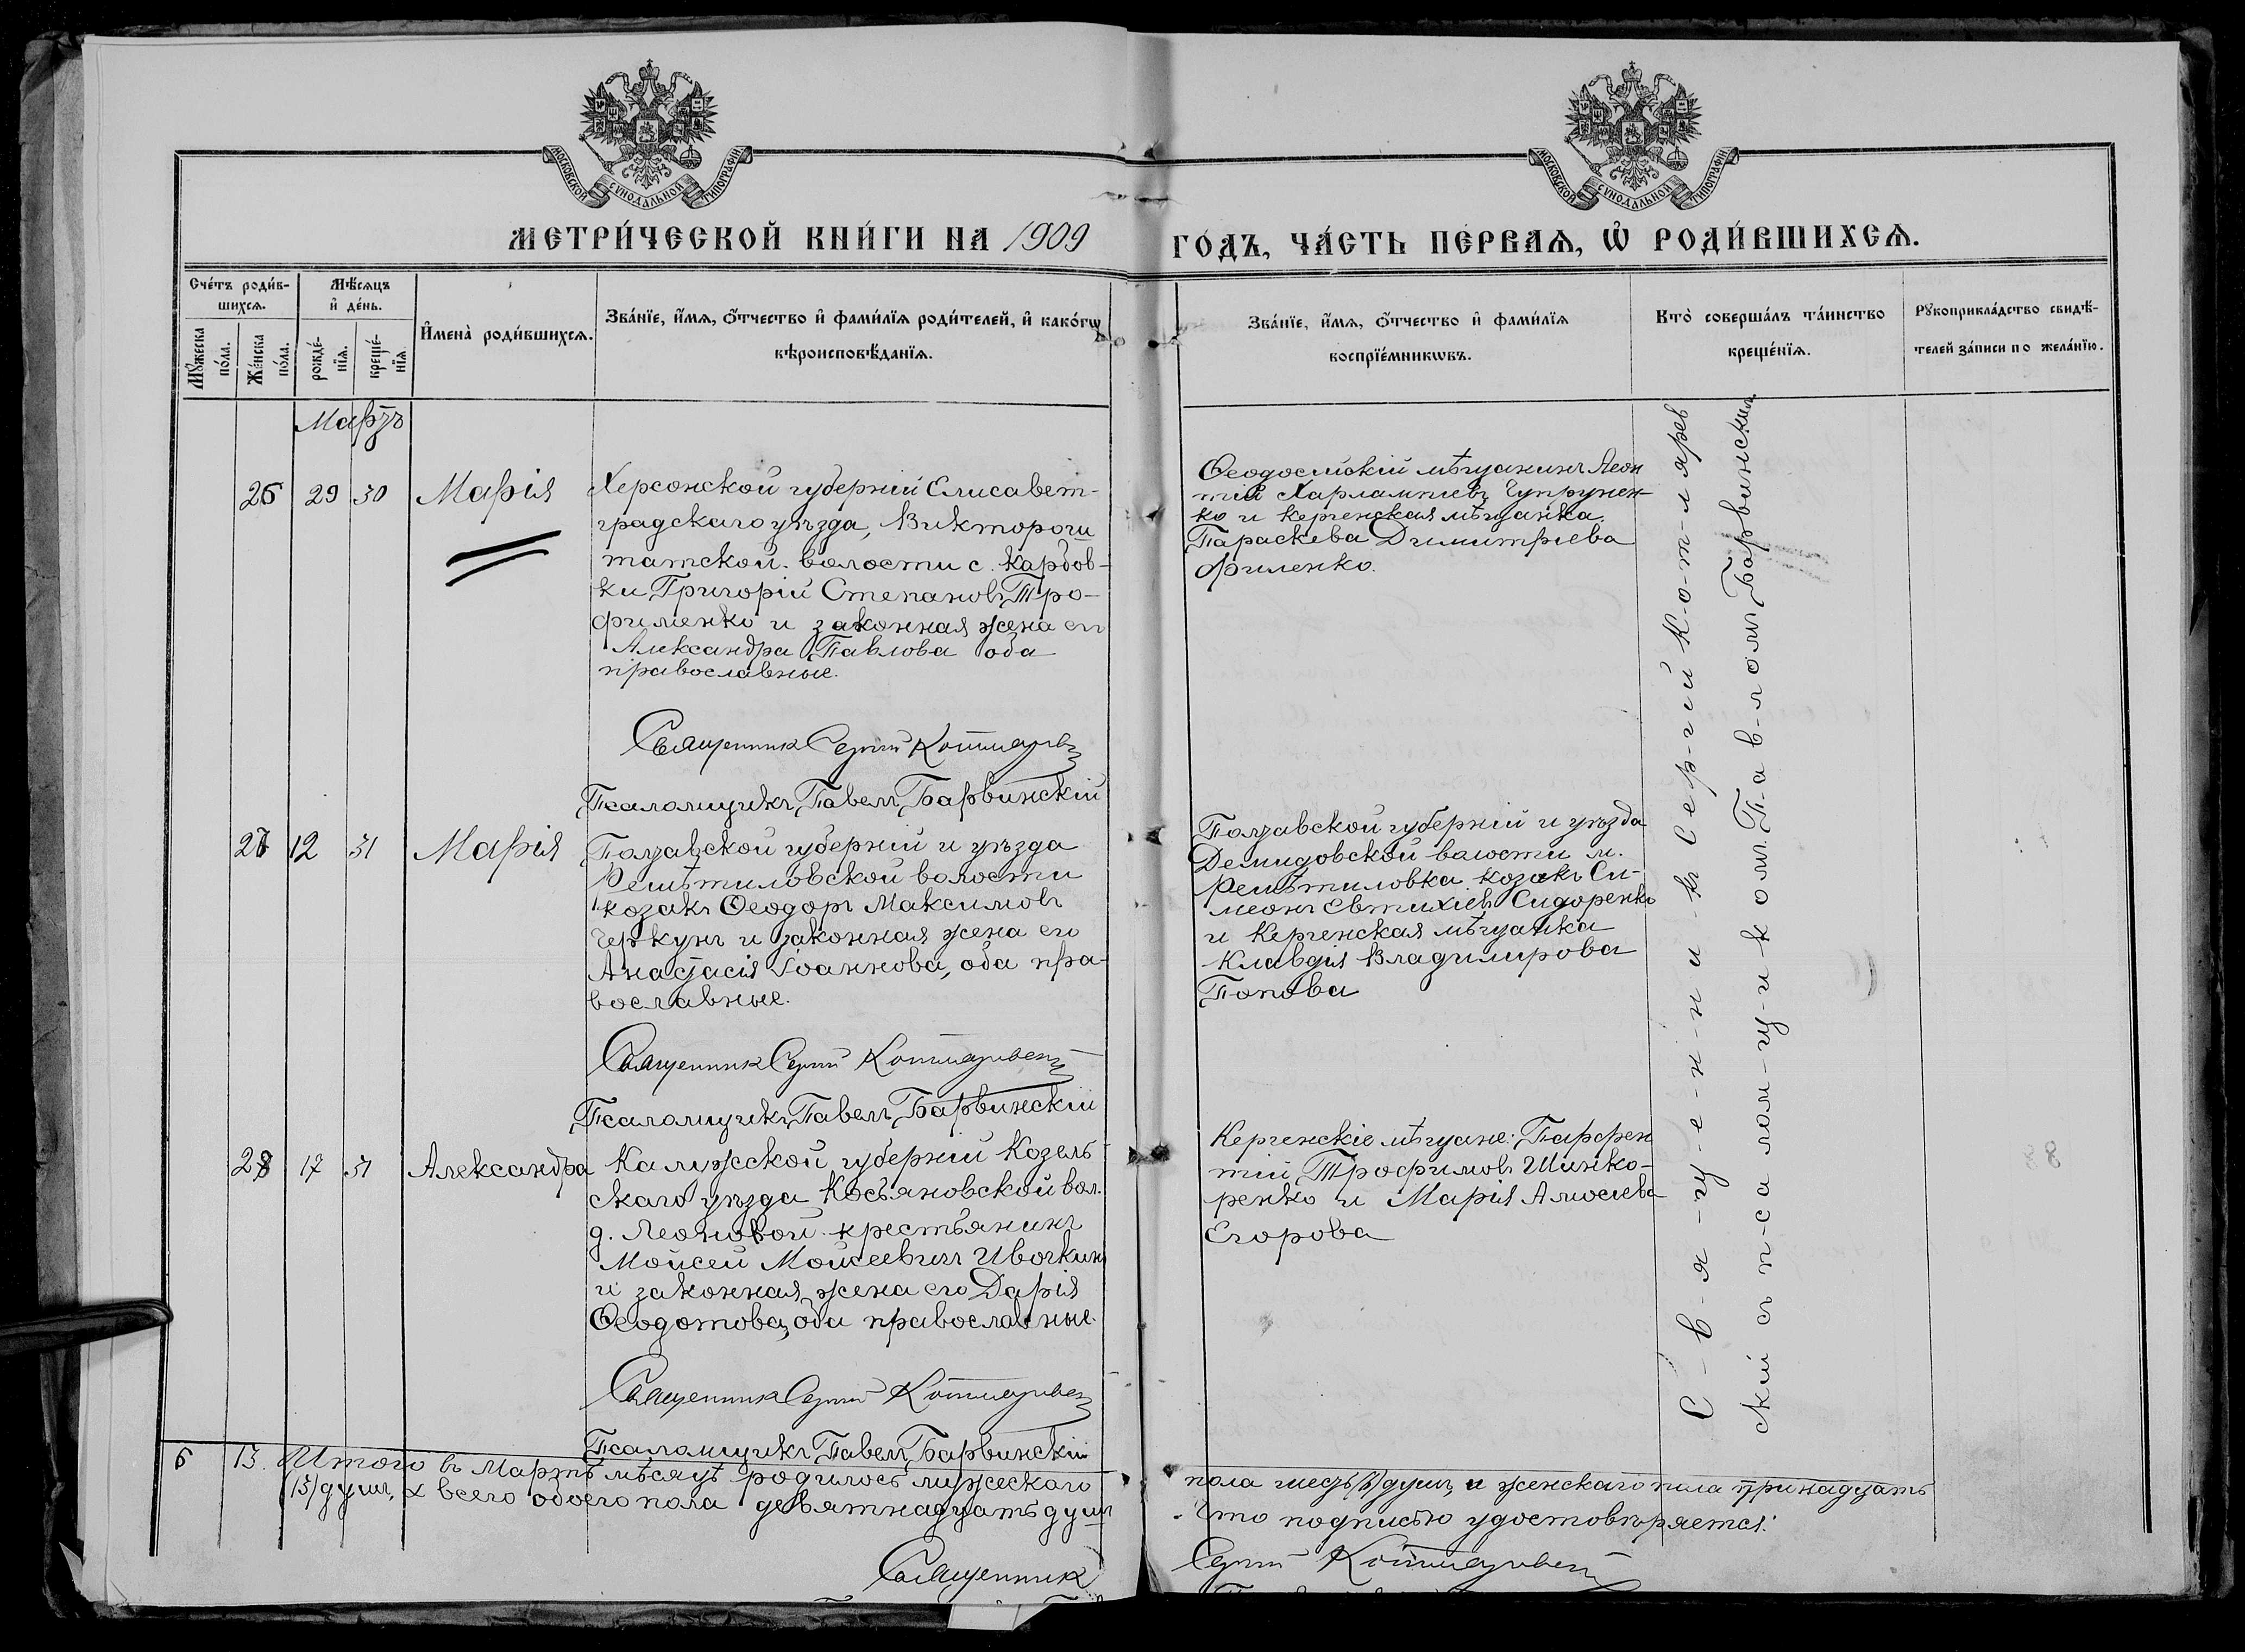 МОСКОВСКОЙ СѴНОДАЛЬНОЙ ТИПОГРАФІИ
МОСКОВСКОЙ СѴНОДАЛЬНОЙ ТИПОГРАФІИ
МЕТРИ́ЧЕСКОЙ КНИ́ГИ НА 1909
ГО́ДЪ, ЧА́СТЬ ПЕ́РВАѦ, Ѽ РОДИ́ВШИХСѦ.
Сче́тъ роди́в-
шихсѧ.
Мꙋ́жеска по́ла.
Же́нска по́ла.
Мѣ́сяцъ
и҆ де́нь.
рожде́-
нїѧ.
креще́-
нїѧ.
И҆мена̀ роди́вшихсѧ.
Зва́нїе, и҆́мѧ, ѻ҆́тчество и҆ фами́лїѧ роди́телей, и҆ како́гѡ
вѣроисповѣ́данїѧ.
Зва́нїе, и҆́мѧ, ѻ҆́тчество и҆ фами́лїѧ
воспрїе́мникѡвъ.
Кто̀ соверша́лъ та́инство
креще́нїѧ.
Рꙋкоприкла́дство свидѣ́-
телей за́писи по жела́нїю.
Мартъ
26 29 30 Марія
Херсонской губерніи Елисавет-
градскаго уѣзда, Викторош
татской волости с. Карбов-
ки Григорій Степановъ Тро-
фименко и законная жена его
Александра Павлова оба
православные.
Священникъ Сергій Котляревъ
Псаломщикъ Павелъ Барвинскій
Ѳеодосійскій мѣщанинъ Леон
тій Харлампіевъ Чупрунен-
ко и керченская мѣщанка
Параскева Димитріева
Филенко.
27 12 31 Марія
Полтавской губерніи и уѣзда
Решетиловской волости
козакъ Ѳеодоръ Максимовъ
Черкунъ и законная жена его
Анастасія Іоаннова, оба пра-
вославные.
Священникъ Сергій Котляревъ
Псаломщикъ Павелъ Барвинскій
Полтавской губерніи и уѣзда
Демидовской волости м.
Решетиловка козакъ Си-
меонъ Евтихіевъ Сидоренко
и Керченская мѣщанка
Клавдія Владимирова
Попова
28 17 31 Александра
Калужской губерніи Козель
скаго уѣзда Косьяновской вол.
д. Леоновой крестьянинъ
Мойсей Мойсеевичъ Ивочкинъ
и законная жена его Дарія
Ѳеодотова, оба православные.
Священникъ Сергій Котляревъ
Псаломщикъ Павелъ Барвинскій
Керченскіе мѣщане: Парфен
тій Трофимовъ Шинко-
ренко и Марія Амосіева
Егорова
С-в-я-щ-е-н-н-и-къ Сер-гій К-о-т-ляревъ
съ п-са лом-щ-и-комъ П-а-в-ломъ Барвинскимъ
скій
6 13. Итого въ Мартѣ мѣсяцѣ родилось мужескаго
пола шесть (6) душъ, и женскаго пола тринадцать
(13) душъ, а всего обоего пола девятнадцать душъ
Что подписью удостовѣряется:
Священникъ
Сергій Котляревъ